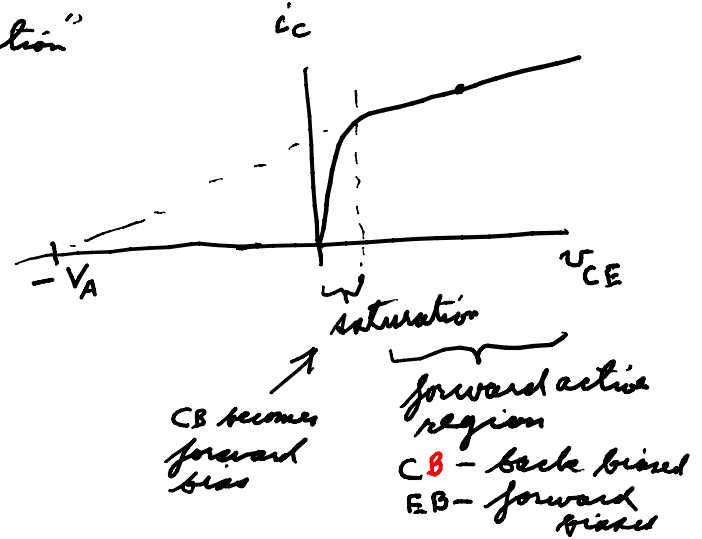 tion"
i_C
- V_A
v_CE
saturation
CB becomes
forward
bias
forward active
region
CB - back biased
EB - forward
biased